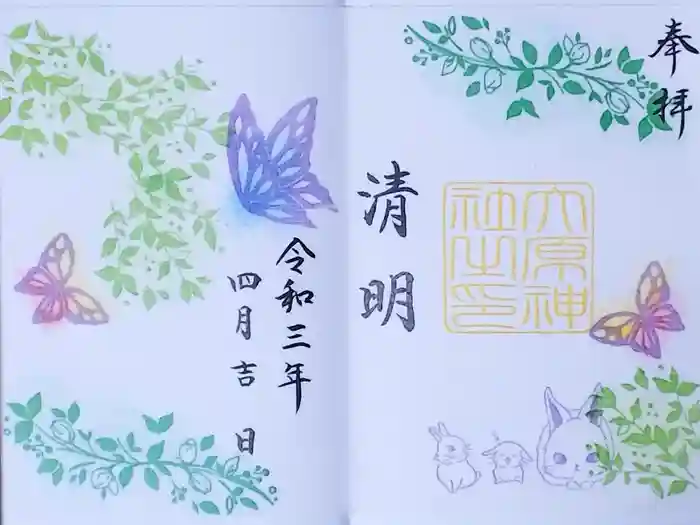 奉拝
清明
六原神
社之印
令和三年
四月吉日